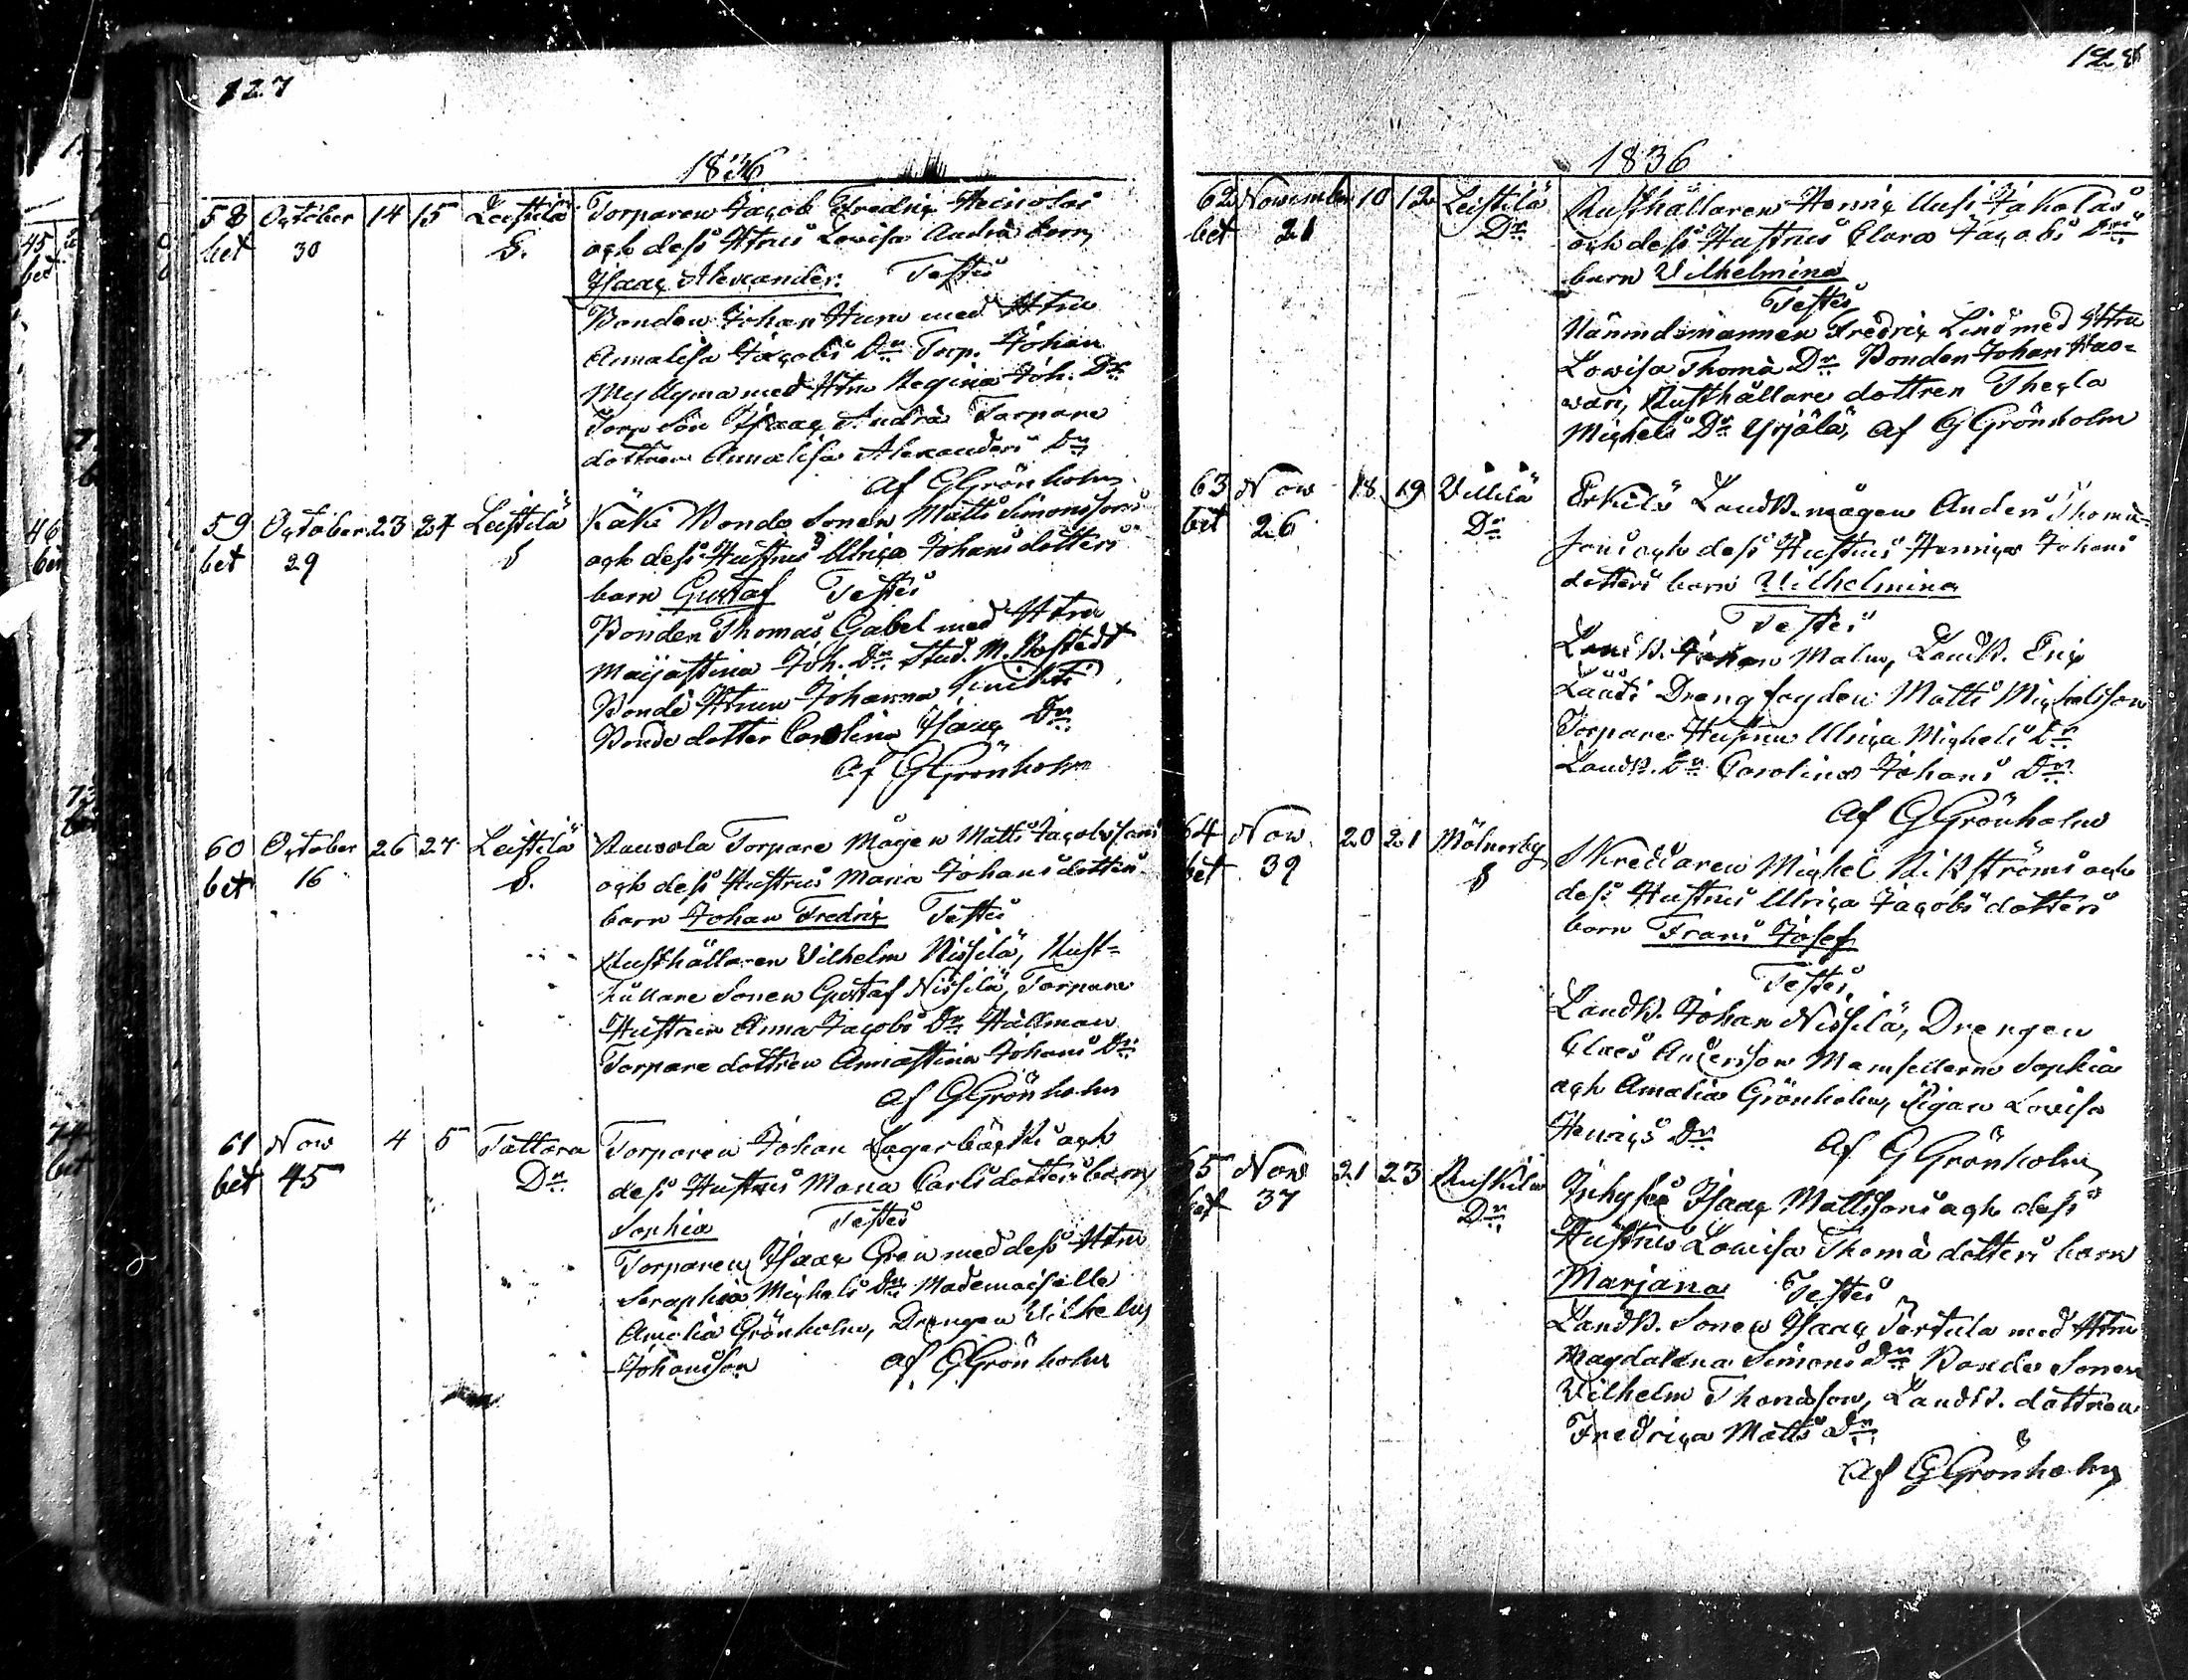 127
1836
58 October 14 15 Leistilä Torparen Jacob Fredric Heinolas
bet 30 S. och dess Htrus Lovisa Andrä barn
Isaac Alexander. Testes
Bonden Johan Hurn med Htru
Annalisa Jacobs Dr Torp. Johan
Myllyma med Htru Regina Joh. Dr
Torp Son Isaac Andrä Torpare
dottren Annalisa Alexanders Dr
af GGrönholm
59 October 23 24 Leistilä Käki Bonde Sonen Matts Simonssons
bet 29 S och dess Hustrus Ulrica Johans dotters
barn Gustaf Testes
Bonden Thomas Gabel med Htru
Maijastina Joh. Dr Stud. M. Rostedt
Bonde Htrun Johanna
Bonde dotter Carolina Isacs Dr
af GGrönholm
60 October 26 27 Leistilä Rausola Torpare Mågen Matts Jacobssons
bet 16 S. och dess Hustrus Maria Johans dotters
barn Johan Fredric Testes
Rusthållaren Vilhelm Nissilä, Rust-
hållare Sonen Gustaf Nissilä, Torpare
Hustrun Anna Jacobs Dr Hällman
Torpare dottren Annastina Johans Dr
af GGrönholm
61 Nov 4 5 Tattara Torparen Johan Lagerbäcks och
bet 45 Dr dess Hustrus Maria Carls dotters barn
Sophia Testes
Torparen Isaac Gren med dess Htru
Seraphia Michels Dr Mademoiselle
Amalia Grönholm, Drengen Vilhelm
Johansson af GGrönholm
128
1836
62 November 10 12 Leistilä Rusthållaren Henric Uusi Jakolas
bet 21 Dr och dess Hustrus Clara Jacobs Drs
barn Vilhelmina
Testes
Nämndemannen Fredric Lind med Htru
Lovisa Thomä Dr Bonden Johan Hao-
vari, Rusthållare dottren Thecla
Michels Dr Yrjälä, af GGrönholm
63 Nov 18 19 Villilä Erkilä Landb. mågen Anders Thomæ-
bet 26 Dr sons och dess Hustrus Henrica Johans
dotters barn Vilhelmina
Testes
Landb. Johan Malm, Landb. Eric
Lääti Drengfogden Matts Michelsson
Torpare Hustrun Ulrica Michels Dr
Landb. Dr Carolina Johans Dr
af GGrönholm
64 Nov. 20 21 Mölnerby Skreddaren Michel Vikströms och
bet 39 S dess Hustrus Ulrica Jacobs dotters
barn Frans Josef
Testes
Landb. Johan Nissilä, Drengen
Claes Andersson Mamsellerne Sophia
och Amalia Grönholm, Pigan Lovisa
Henrics Dr af GGrönholm
65 Nov 21 23 Ruskila Isaac Mattssons och dess
bet 37 Dr Hustrus Lovisa Thomä dotters barn
Marjana Testes
Landb. Sonen Isaac Törtula med Htru
Magdalena Simons Dr Bonde Sonen
Vilhelm Thomasson, Landb. dottren
Fredrica Matts Dr
af GGrönholm
45
bet
46
bet